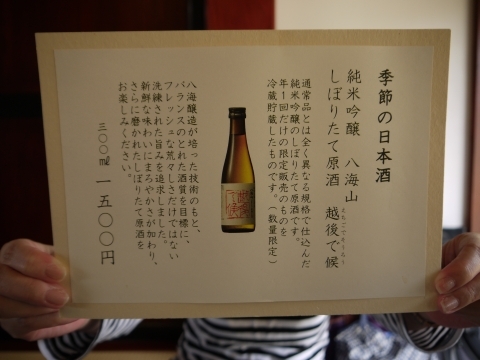 季節の日本酒
純米吟醸 八海山
しぼりたて原酒 越後で候
えちごでそうろう
通常品とは全く異なる規格で仕込んだ
純米吟醸のしぼりたて原酒です。
年1回だけの限定販売のものを
冷蔵貯蔵したものです。（数量限定）
越後で候
八海醸造が培った技術のもと、
バランスのとれた酒質を目標に、
フレッシュな荒々しさだけではない
洗練された旨みを追求しました。
新鮮な味わいにまろやかさが加わり、
さらに磨かれたしぼりたて原酒を
お楽しみください。
三〇〇ml 一五〇〇円